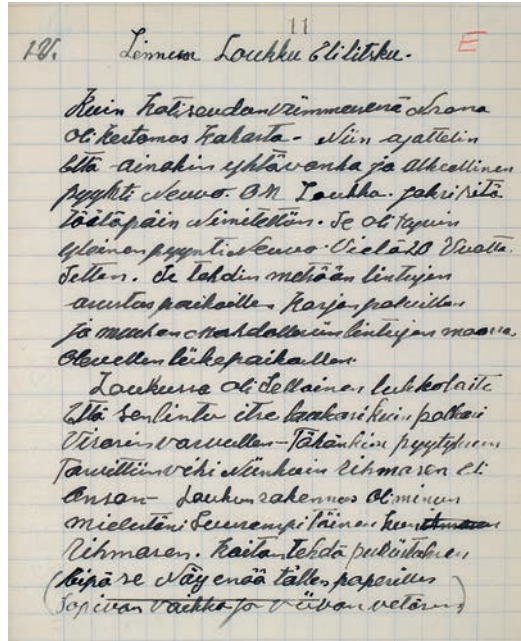 11
IV. Linnun Loukku Eli litsku. E
Kuin Kotiseudan viimmesenä Nrona
oli kertomus Kahasta - Niin ajattelin
Että - ainakin yhtävanha ja alkeellinen
pyyhti Neuvo. ON Loukku. joksi sitä
täälläpäin Nimitettiin. Se oli hyvin
yleinen pyynti Neuvo. Vielä 20 Vuotta.
Sitten. Se tehdin metsään lintujen
asustos paikoillen Karjas poluillen
ja muuhun mahdollisiin lintujen maassa
Olevillen liikepaikoillen.
Loukussa oli Sellainen
Että sen lintu itse laukasi kuin polkasi
Visasin varvullen - Tähänkiin pyytykseen
Tarvittiin väki Niinkuin Rihmasen eli
Ansan - Loukun rakennos Oli minun
mielestäni Seurempi töinen kuin
Rihmasen. Koitan tehdä
(Eipä se Näy enää tällen paperillen
Sopivan vaikka jo viivan vetäsin)